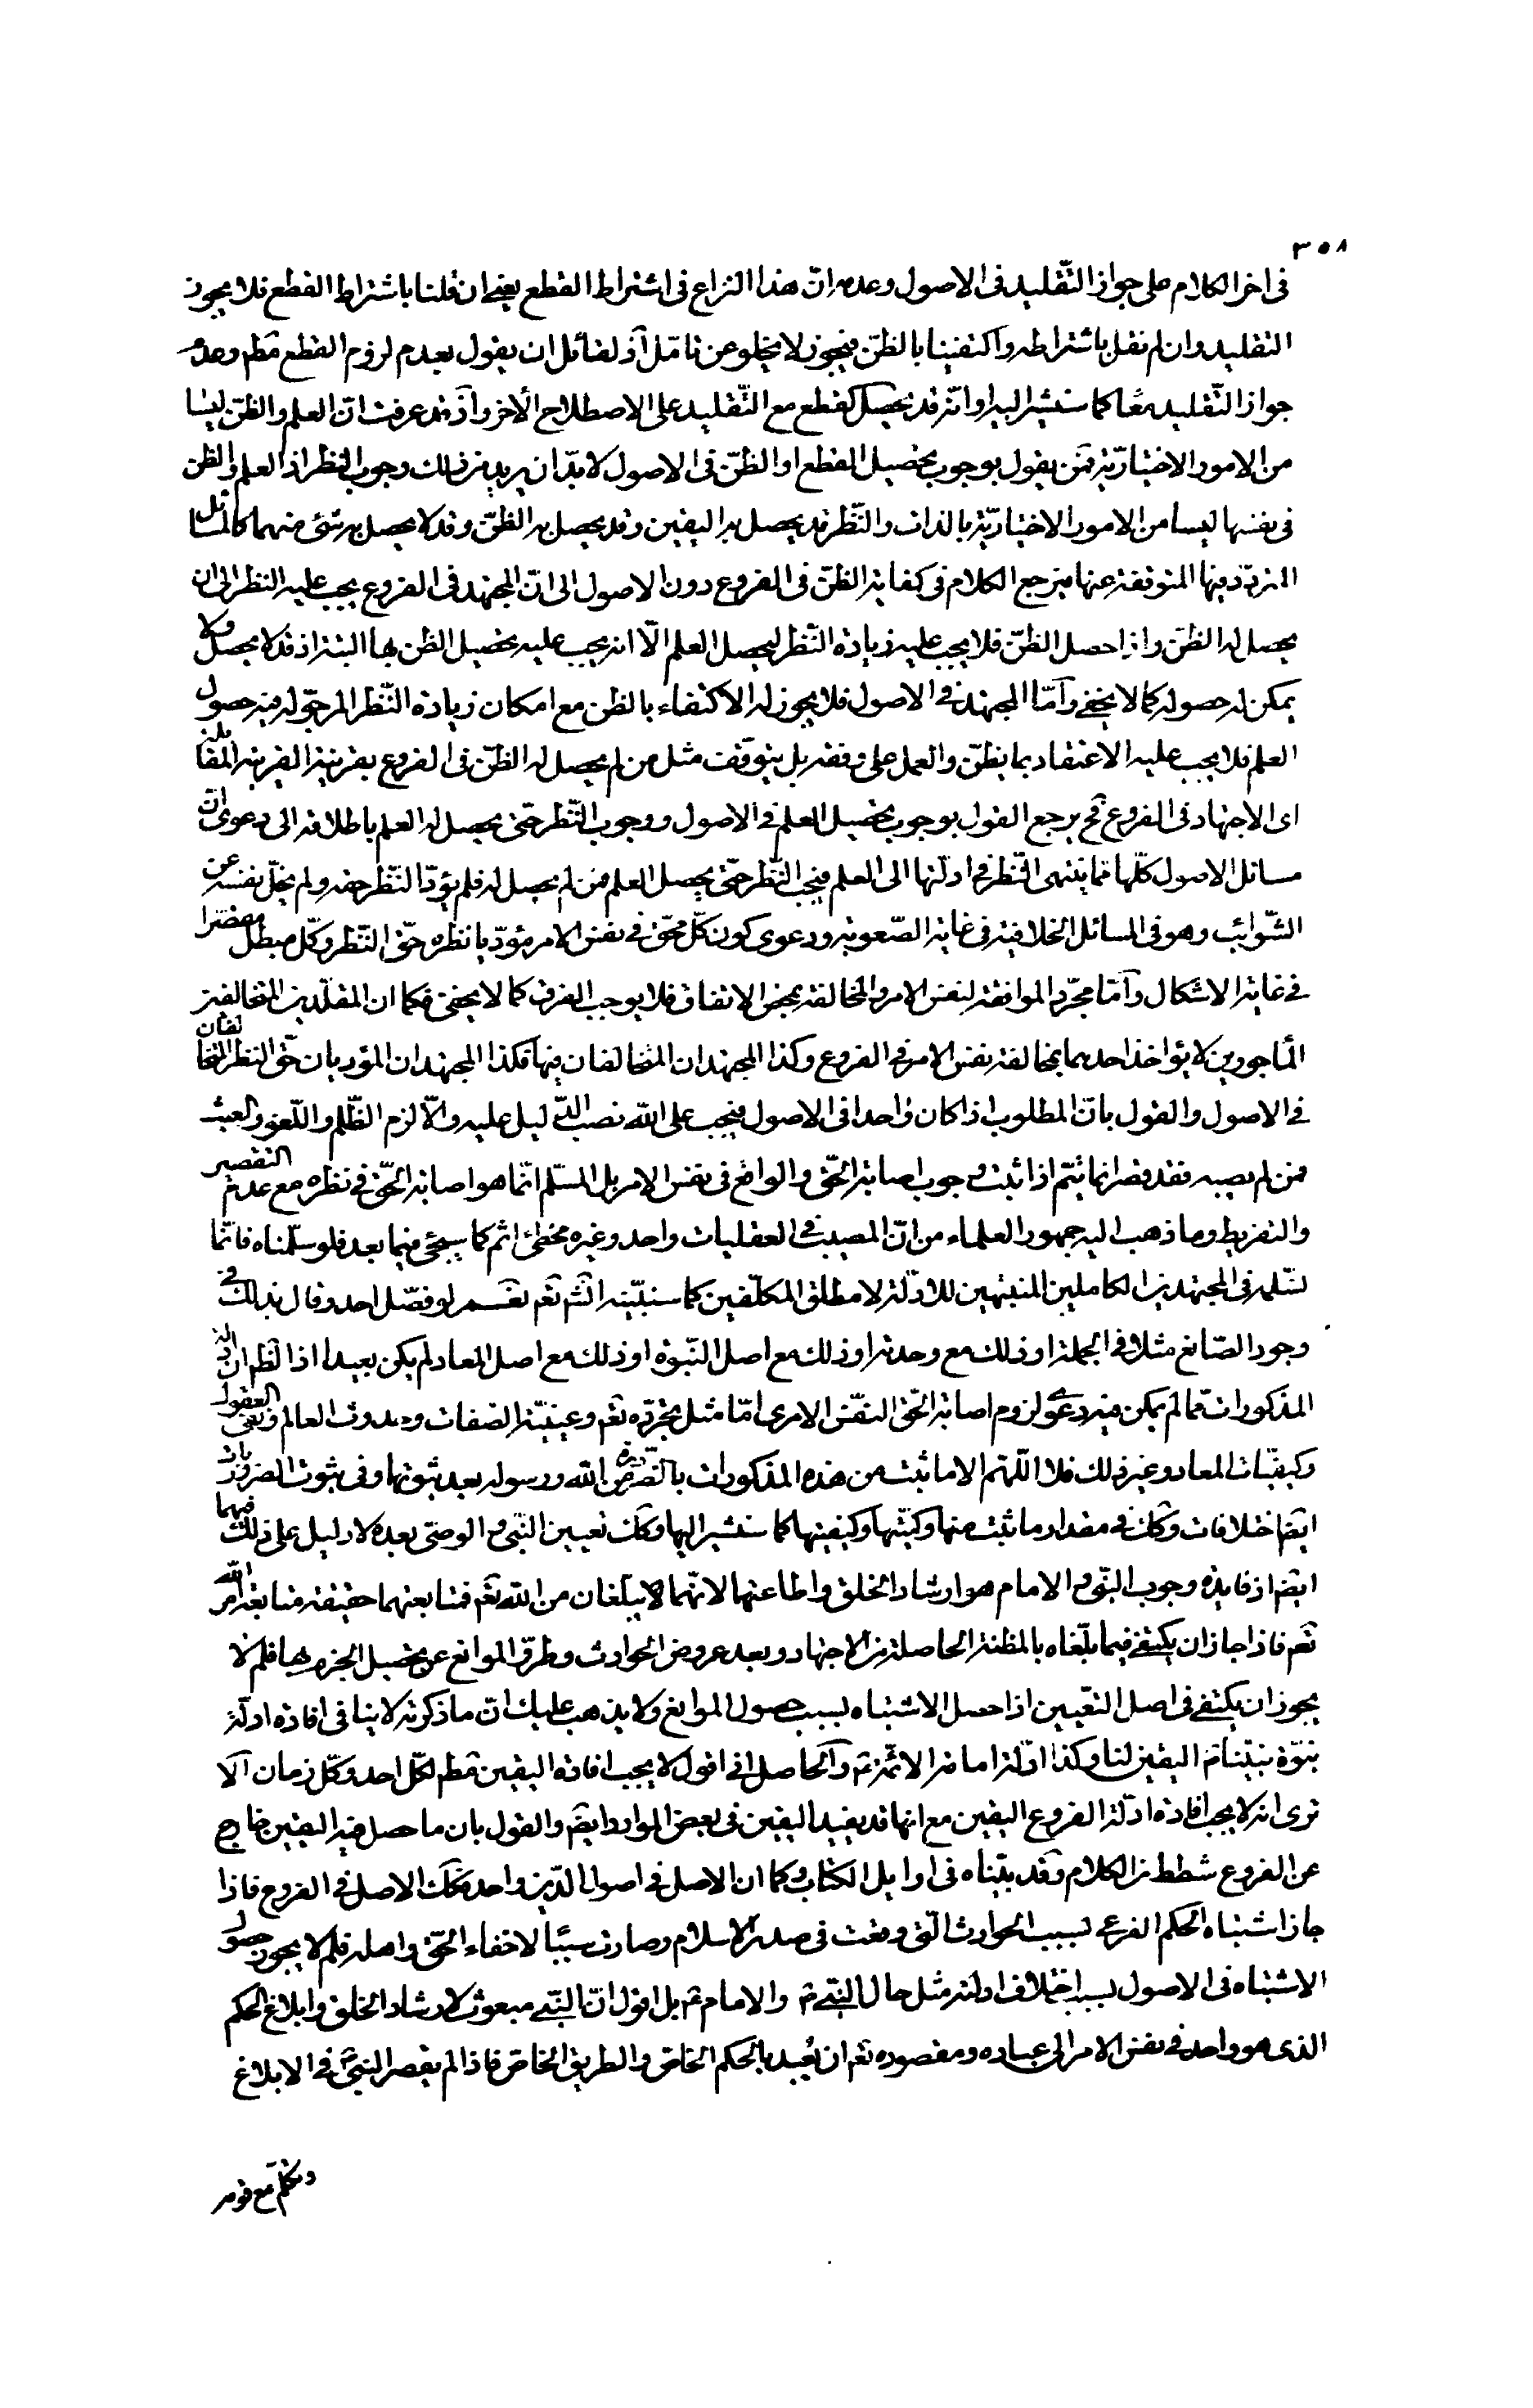 ٣٥٨
فى اخر الكلام على جواز التّقليد فى الاصول وعدمه انّ هذا النزاع فى اشتراط القطع يعنى ان قلنا باشتراط القطع فلا يجوز
التقليد وان لم نقل باشتراطه واكتفينا بالظنّ فيجوز لا يخلو عن تامّل اذ لقائل ان يقول بعدم لزوم القطع مطم وعدم
جواز التّقليد معًا كما سنشير اليه او انّه قد يحصل القطع مع التّقليد على الاصطلاح الأخر واذ قد عرفت انّ العلم والظنّ ليسا
من الامور الاختياريّة فمن يقول بوجوب تحصيل القطع او الظنّ فى الاصول لا بدّ ان يريد من ذلك وجوب النظر اذ العلم والظن
فى نفسها ليسا من الامور الاختياريّة بالذات والنّظر قد يحصل به اليقين وقد يحصل به الظنّ وقد لا يحصل به شئ منهما كالمسائل
المتردّد فيها المتوقفة عنها فيرجع الكلام فى كفاية الظنّ فى الفروع دون الاصول الى انّ المجتهد فى الفروع يجب عليه النظر الى ان
يحصل له الظنّ واذا حصل الظنّ فلا يجب عليه زيادة النّظر ليحصل العلم الّا انه يجب عليه تحصيل الظن بها البتة اذ قد لا يحصل ولا
يمكن له حصوله كما لا يخفى وامّا المجتهد فى الاصول فلا يجوز له الاكتفاء بالظن مع امكان زيادة النّظر المرجوّ له فيه حصول
العلم فلا يجب عليه الاعتقاد بما يظنّ والعمل على وفقه بل يتوقّف مثل من لم يحصل له الظنّ فى الفروع بقرينة القرينة المقابلة
اى الاجتهاد فى الفروع فح يرجع القول بوجوب تحصيل العلم فى الاصول ووجوب النّظر حتّى يحصل له العلم باطلاقه الى دعوى انّ
مسائل الاصول كلّها ممّا ينتهى النّظر فى ادلّتها الى العلم فيجب النّظر حتّى يحصل العلم فمن لم يحصل له فلم يؤدّ النّظر حقه ولم يخلّ نفسه عن
الشّوائب وهو فى المسائل الخلافية فى غاية الصّعوبة ودعوى كون كلّ محقّ فى نفس الامر مؤدّيا نظره حقّ النّظر وكلّ مبطل مقصّرا
فى غاية الاشكال وامّا مجرّد الموافقة لنفس الامر والمخالفة بمحض الاتفاق فلا يوجب الفرق كما لا يخفى فكما ان المقلّدين المتخالفين
المأجورين لا يؤاخذ احدهما بمخالفة نفس الامر فى الفروع وكذا المجتهدان المتخالفان فيها فكذا المجتهدان المؤديان حقّ النظر المتخالفان
فى الاصول والقول بانّ المطلوب اذا كان واحدا فى الاصول فيجب على الله نصب الدّليل عليه والّا لزم الظّلم واللّغو والعبث
فمن لم يصبه فقد قصر انما يتم اذا ثبت وجوب اصابة الحقّ والواقع فى نفس الامر بل المسلّم انّما هو اصابة الحقّ فى نظره مع عدم التقصير
والتفريط وما ذهب اليه جمهور العلماء من انّ المصيب فى العقليات واحد وغيره مخطئ اثم كما سيجئ فيما بعد فلو سلّمناه فانّما
نسّلمه فى المجتهدين الكاملين المنتبهين للادّلة لا مطلق المكلّفين كما سنبيّنه انش تعم نعم لو فصّل احد وقال بذلك فى
وجود الصّانع مثلا فى الجملة او ذلك مع وحدته او ذلك مع اصل النّبوة او ذلك مع اصل المعاد لم يكن بعيدا اذا لظم ان ادلة
المذكورات ممّا لم يمكن فيه دعوى لزوم اصابة الحقّ النّفس الامرى امّا مثل تجرّده تعم وعينيّة الصّفات وحدوث العالم ونفى العقول
وكيفيّات المعاد وغير ذلك فلا اللّهم الا ما ثبت من هذه المذكورات بالضرورة من الله ورسوله بعد ثبوتها وفى ثبوت الضروريات
ايضا خلافات وكك فى مقدار ما ثبت منها وكميّتها وكيفيتها كما سنشير اليها وكك تعيين النّبى والوصىّ بعده لا دليل على ذلك فيهما
ايضا اذ فايدة وجوب النّبى والامام هو ارشاد الخلق واطاعتهما لانّهما لا يبلّغان من الله تعم فمتابعتهما حقيقة متابعة امر الله
تعم فاذا جاز ان يكتفى فيما بلّغاه بالمظنة الحاصلة من الاجتهاد وبعد عروض الحوادث وطرّو الموانع عن تحصيل الجزم بها فلم لا
يجوز ان يكتفى فى اصل التعيين اذا حصل الاشتباه بسبب حصول الموانع ولا يذهب عليك انّ ما ذكرته لا ينافى افادة ادلّة
نبوّة نبيّنا ص اليقين لنا وكذا ادّلة امامة الائمّة ع والحاصل انى اقول لا يجب افادة اليقين مطم لكلّ احد وكلّ زمان الا
ترى انه لا يجب افادة ادلّة الفروع اليقين مع انها قد يفيد اليقين فى بعض الموارد ايضا والقول بان ما حصل فيه اليقين خارج
عن الفروع شطط من الكلام وقد بيّناه فى اوايل الكتاب وكما ان الاصل فى اصول الدّين واحد فكك الاصل فى الفروع فاذا
جاز اشتباه الحكم الفرعى بسبب الحوادث الّتى وقعت فى صدر الاسلام وصارت سببًا لاخفاء الحقّ واهله فلم لا يجوز حصول
الاشتباه فى الاصول بسبب اختلاف ادلته مثل حال النّبى ص والامام ع بل اقول انّ النّبى مبعوث لارشاد الخلق وابلاغ الحكم
الذى هو واحد فى نفس الامر الى عباده ومقصوده تعم ان يُعبد بالحكم الخاص والطريق الخاص فاذا لم يقصر النبى ص فى الابلاغ
وتكلّم مع قومه